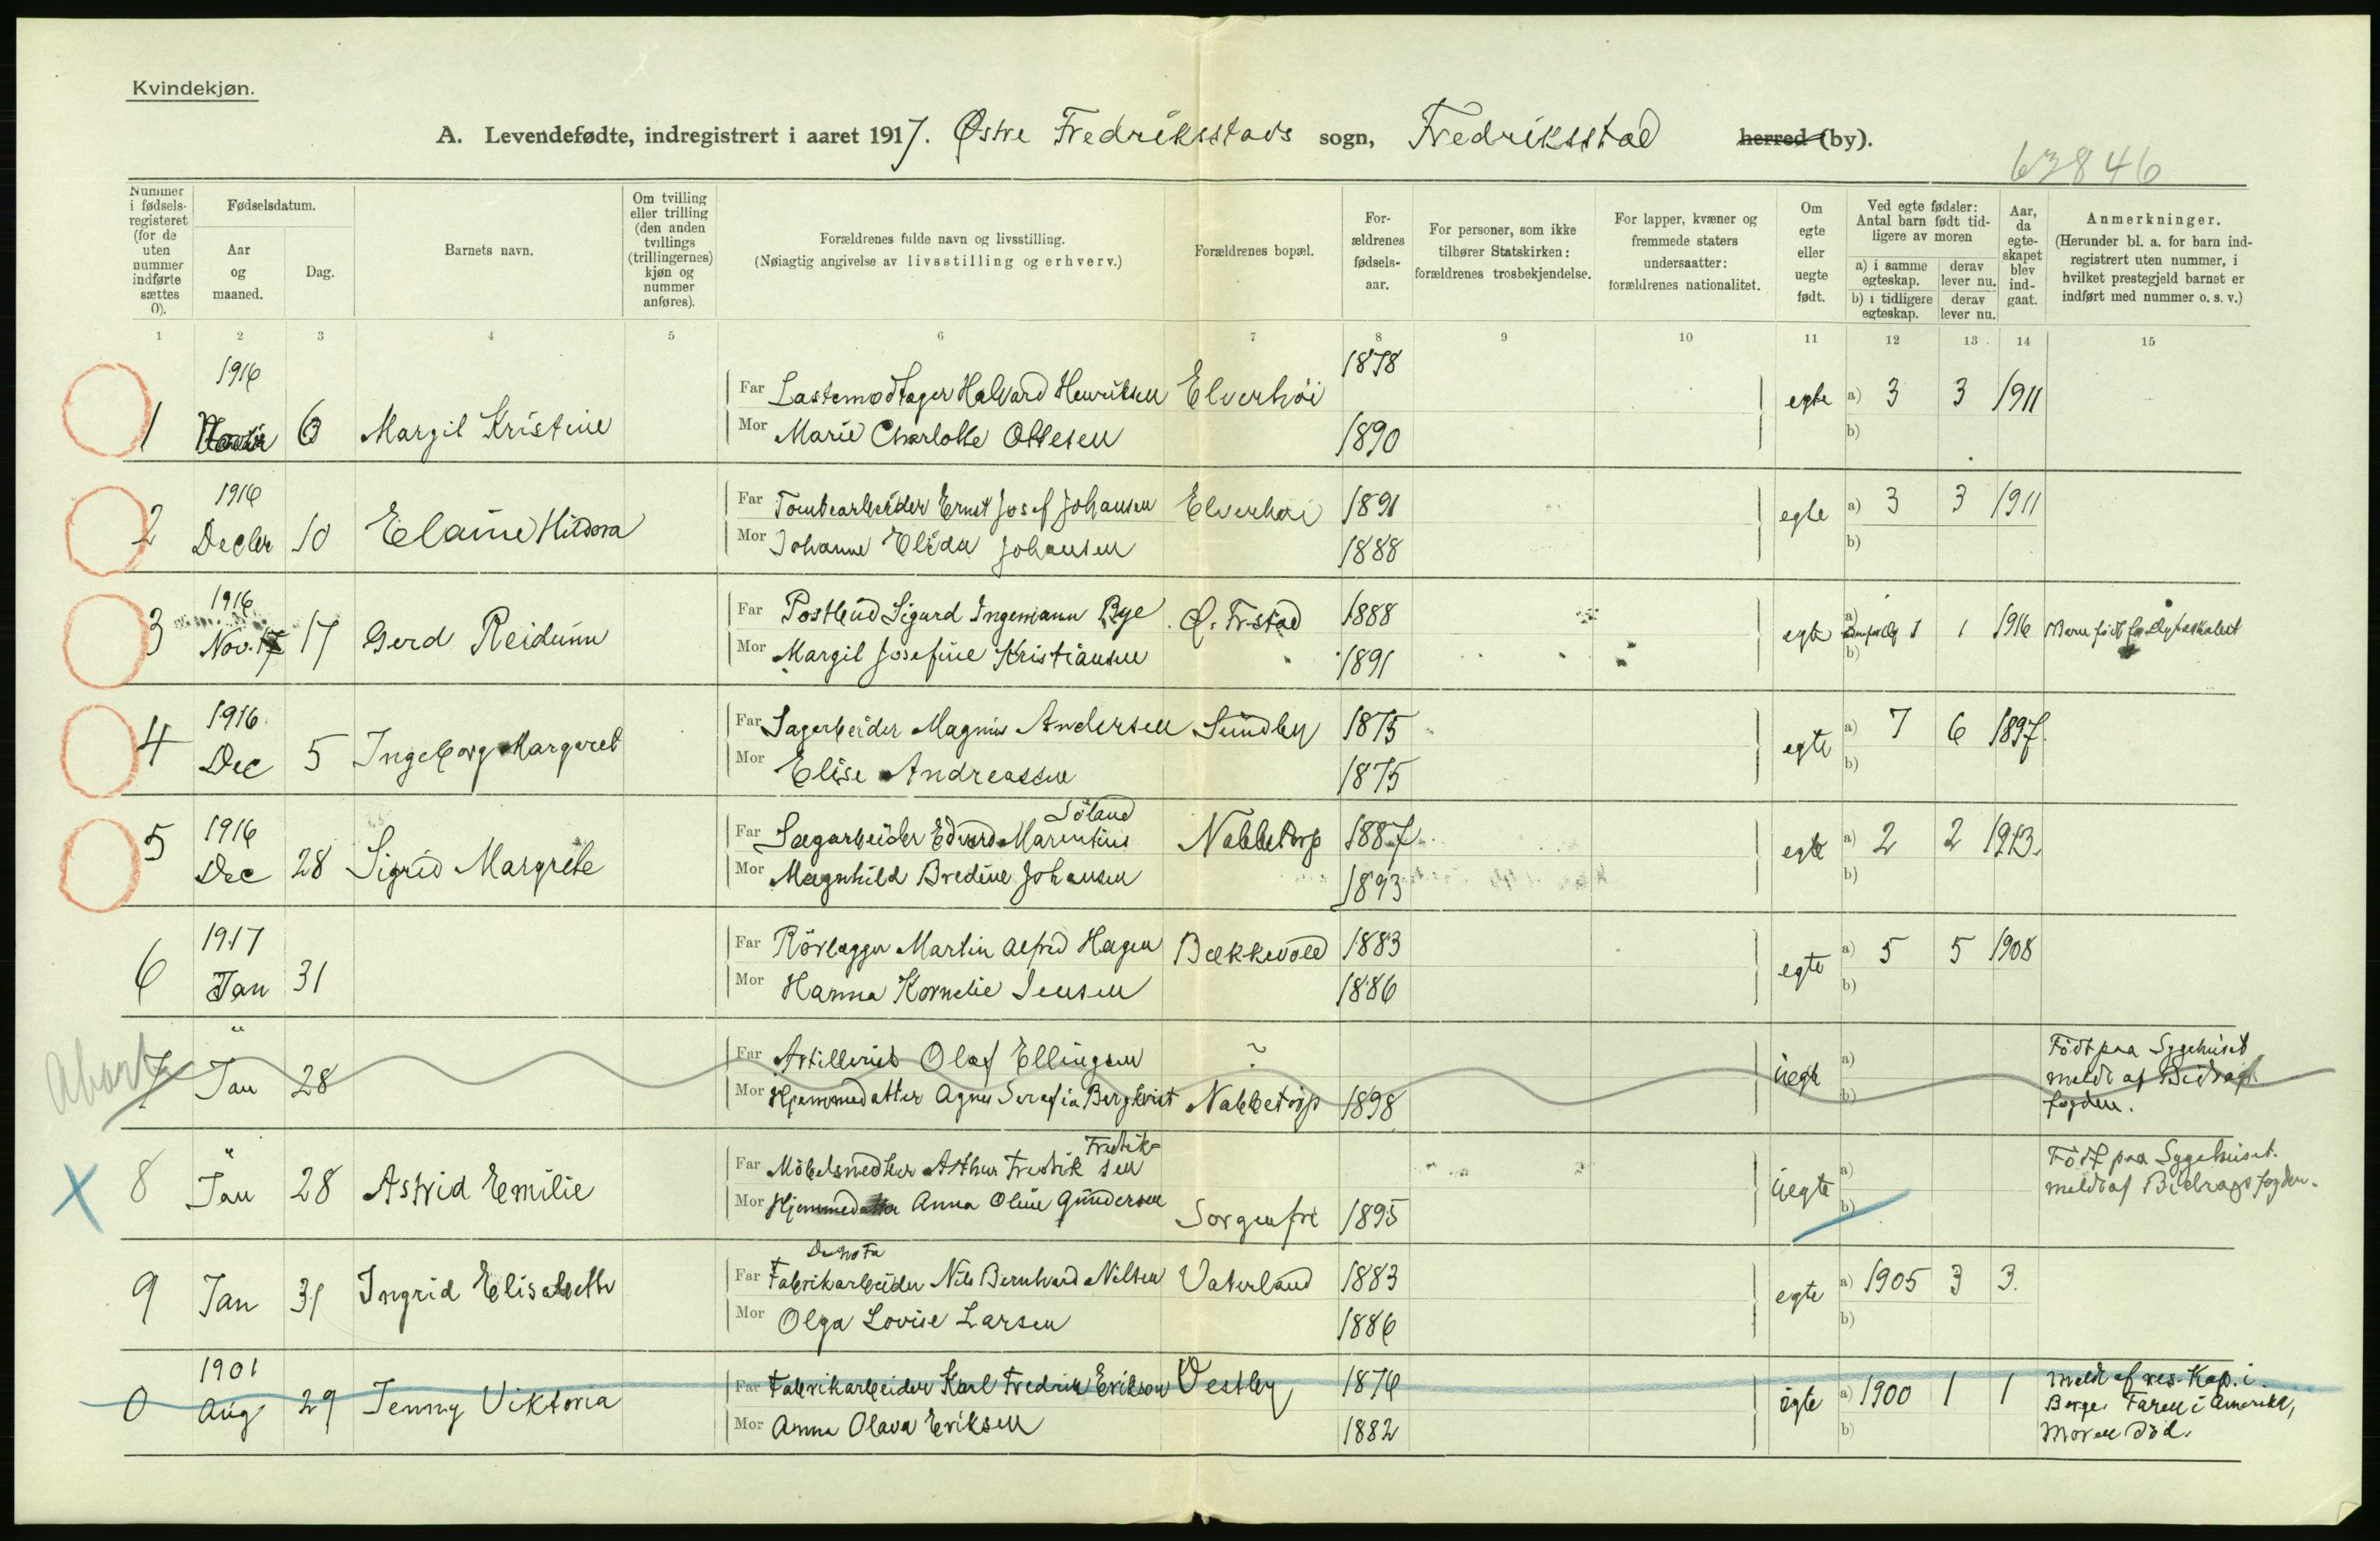 Kvindekjøn.
A. Levendefødte, indregistrert i aaret 1917. Østre Fredriksstads sogn, Fredriksstad herred (by).
63846
Nummer i fødselsregisteret (for de uten nummer indførte sættes 0).
Fødselsdatum.
Aar og maaned.
Dag.
Barnets navn.
Om tvilling eller trilling (den anden tvillings (trillingernes) kjøn og nummer anføres).
Forældrenes fulde navn og livsstilling.
(Nøiagtig angivelse av livsstilling og erhverv.)
Forældrenes bopæl.
Forældrenes fødselsaar.
For personer, som ikke tilhører Statskirken: forældrenes trosbekjendelse.
For lapper, kvæner og fremmede staters undersaatter: forældrenes nationalitet.
Om egte eller uegte født.
Ved egte fødsler: Antal barn født tidligere av moren
a) i samme egteskap.
derav lever nu.
b) i tidligere egteskap.
derav lever nu.
Aar, da egteskapet blev indgaat.
Anmerkninger.
(Herunder bl. a. for barn indregistrert uten nummer, i hvilket prestegjeld barnet er indført med nummer o. s. v.)
1 2 3 4 5 6 7 8 9 10 11 12 13 14 15
1916 1878
Far Lastemodtager Halvard Henriksen Elverhöi
1 6 Margit Kristine egte a) 3 3 1911
Mor Marie Charlotte Ottesen 1890 b)
1916 Far Ernst Josef Johansen Elverhöi 1891 a) 3 3 1911
2 Decbr 10 Elaine egte
Mor Johanne Elida Johansen 1888 b)
1916 Far Postbud Sigurd Ingemann Bye Ø. Fr.stad 1888 a)
3 Nov. 17 17 Gerd Reidunn egte 1 1 1916 Barn født
Mor Margit Josefine Kristiansen 1891 b)
1916 Far Sagarbeider Magnus Andersen Sundby 1875 a) 7 6 1897.
4 Dec 5 Ingeborg Margaret egte
Mor Elise Andreassen 1875 b)
Söland
1916 Far Sagarbeider Edvard Marentius Nabbetorp 1887 a) 2 2 1913.
5 Dec 28 Sigrid Margrethe egte
Mor Magnhild Bredine Johansen 1893 b)
1917 Far Rörlægger Martin Alfred Hagen Bækkevold 1883 a) 5 5 1908
6 Jan 31 egte
Mor Hanna Kornelie Jensen 1886 b)
Abort
" Far Artillerist Olaf Ellingsen ? a) Födt paa Sygehuset
7 Jan 28 uegte meldt af Bidrags
Mor Hjemmedatter Agnes Serafia Bergkvist Nabbetorp 1898 b) fogden.
Fredrik-
" Far Möbelsnedker Arthur Fredrik sen a) Födt paa Sygehuset.
x 8 Jan 28 Astrid Emilie uegte meldt af Bidragsfogden.
Mor Hjemmedatter Anna Oline Gundersen Sorgenfri 1895 b)
Far Fabrikarbeider Nils Bernhard Nilsen Vaterland 1883 a) 1905 3 3.
9 Jan 31 Ingrid Elisabeth egte
Mor Olga Lovise Larsen 1886 b)
1901 Far Fabrikarbeider Karl Fredrik Erikson Vestby 1876 a) 1900 1 1 Meldt af res. Kap. i
0 Aug 29 Jenny Viktoria egte Borge. Faren i Amerika,
Mor Anna Olava Eriksen 1882 b) Moren död.